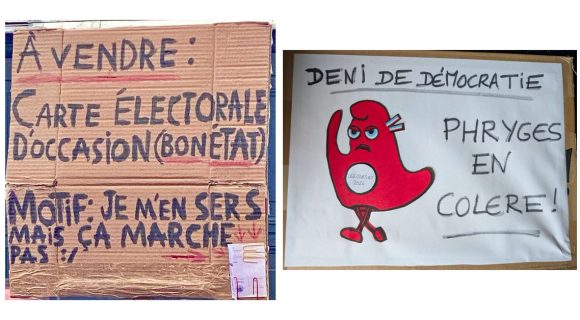 À VENDRE :
CARTE ÉLECTORALE
D'OCCASION (BON ÉTAT)
MOTIF : JE M'EN SERS
MAIS ÇA MARCHE
PAS :/
DENI DE DÉMOCRATIE
PHRYGES
EN
COLERE !